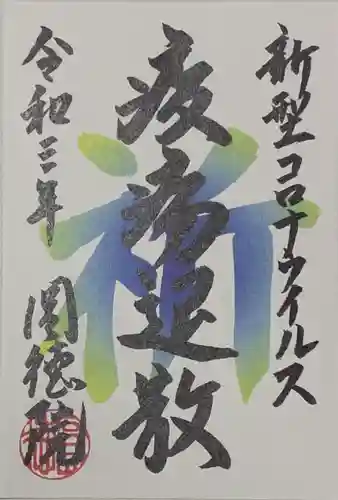 新型コロナウイルス
疫病退散
祈
令和三年
円徳院